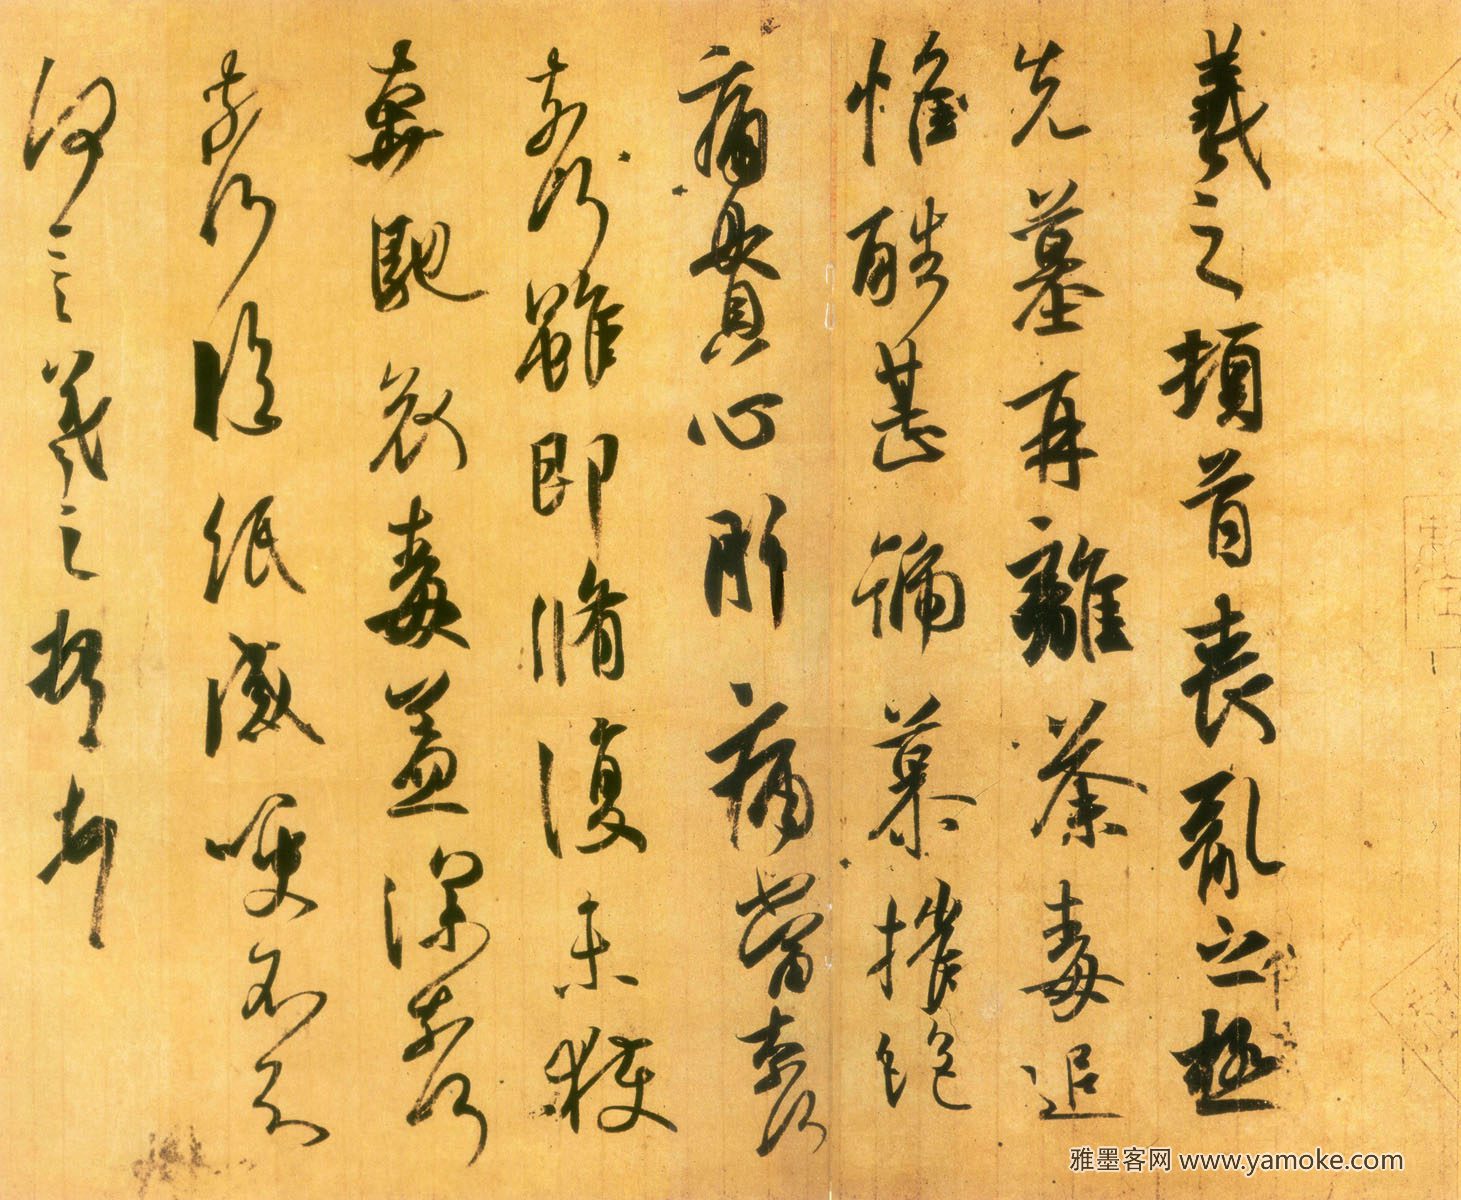 羲之頓首喪亂之極
先墓再離荼毒追
惟酷甚號慕摧絕
痛貫心肝痛當柰何
柰何雖即脩復未獲
奔馳哀毒益深柰何
柰何臨紙感哽不知
何言羲之頓首
雅墨客网 www.yamoke.com